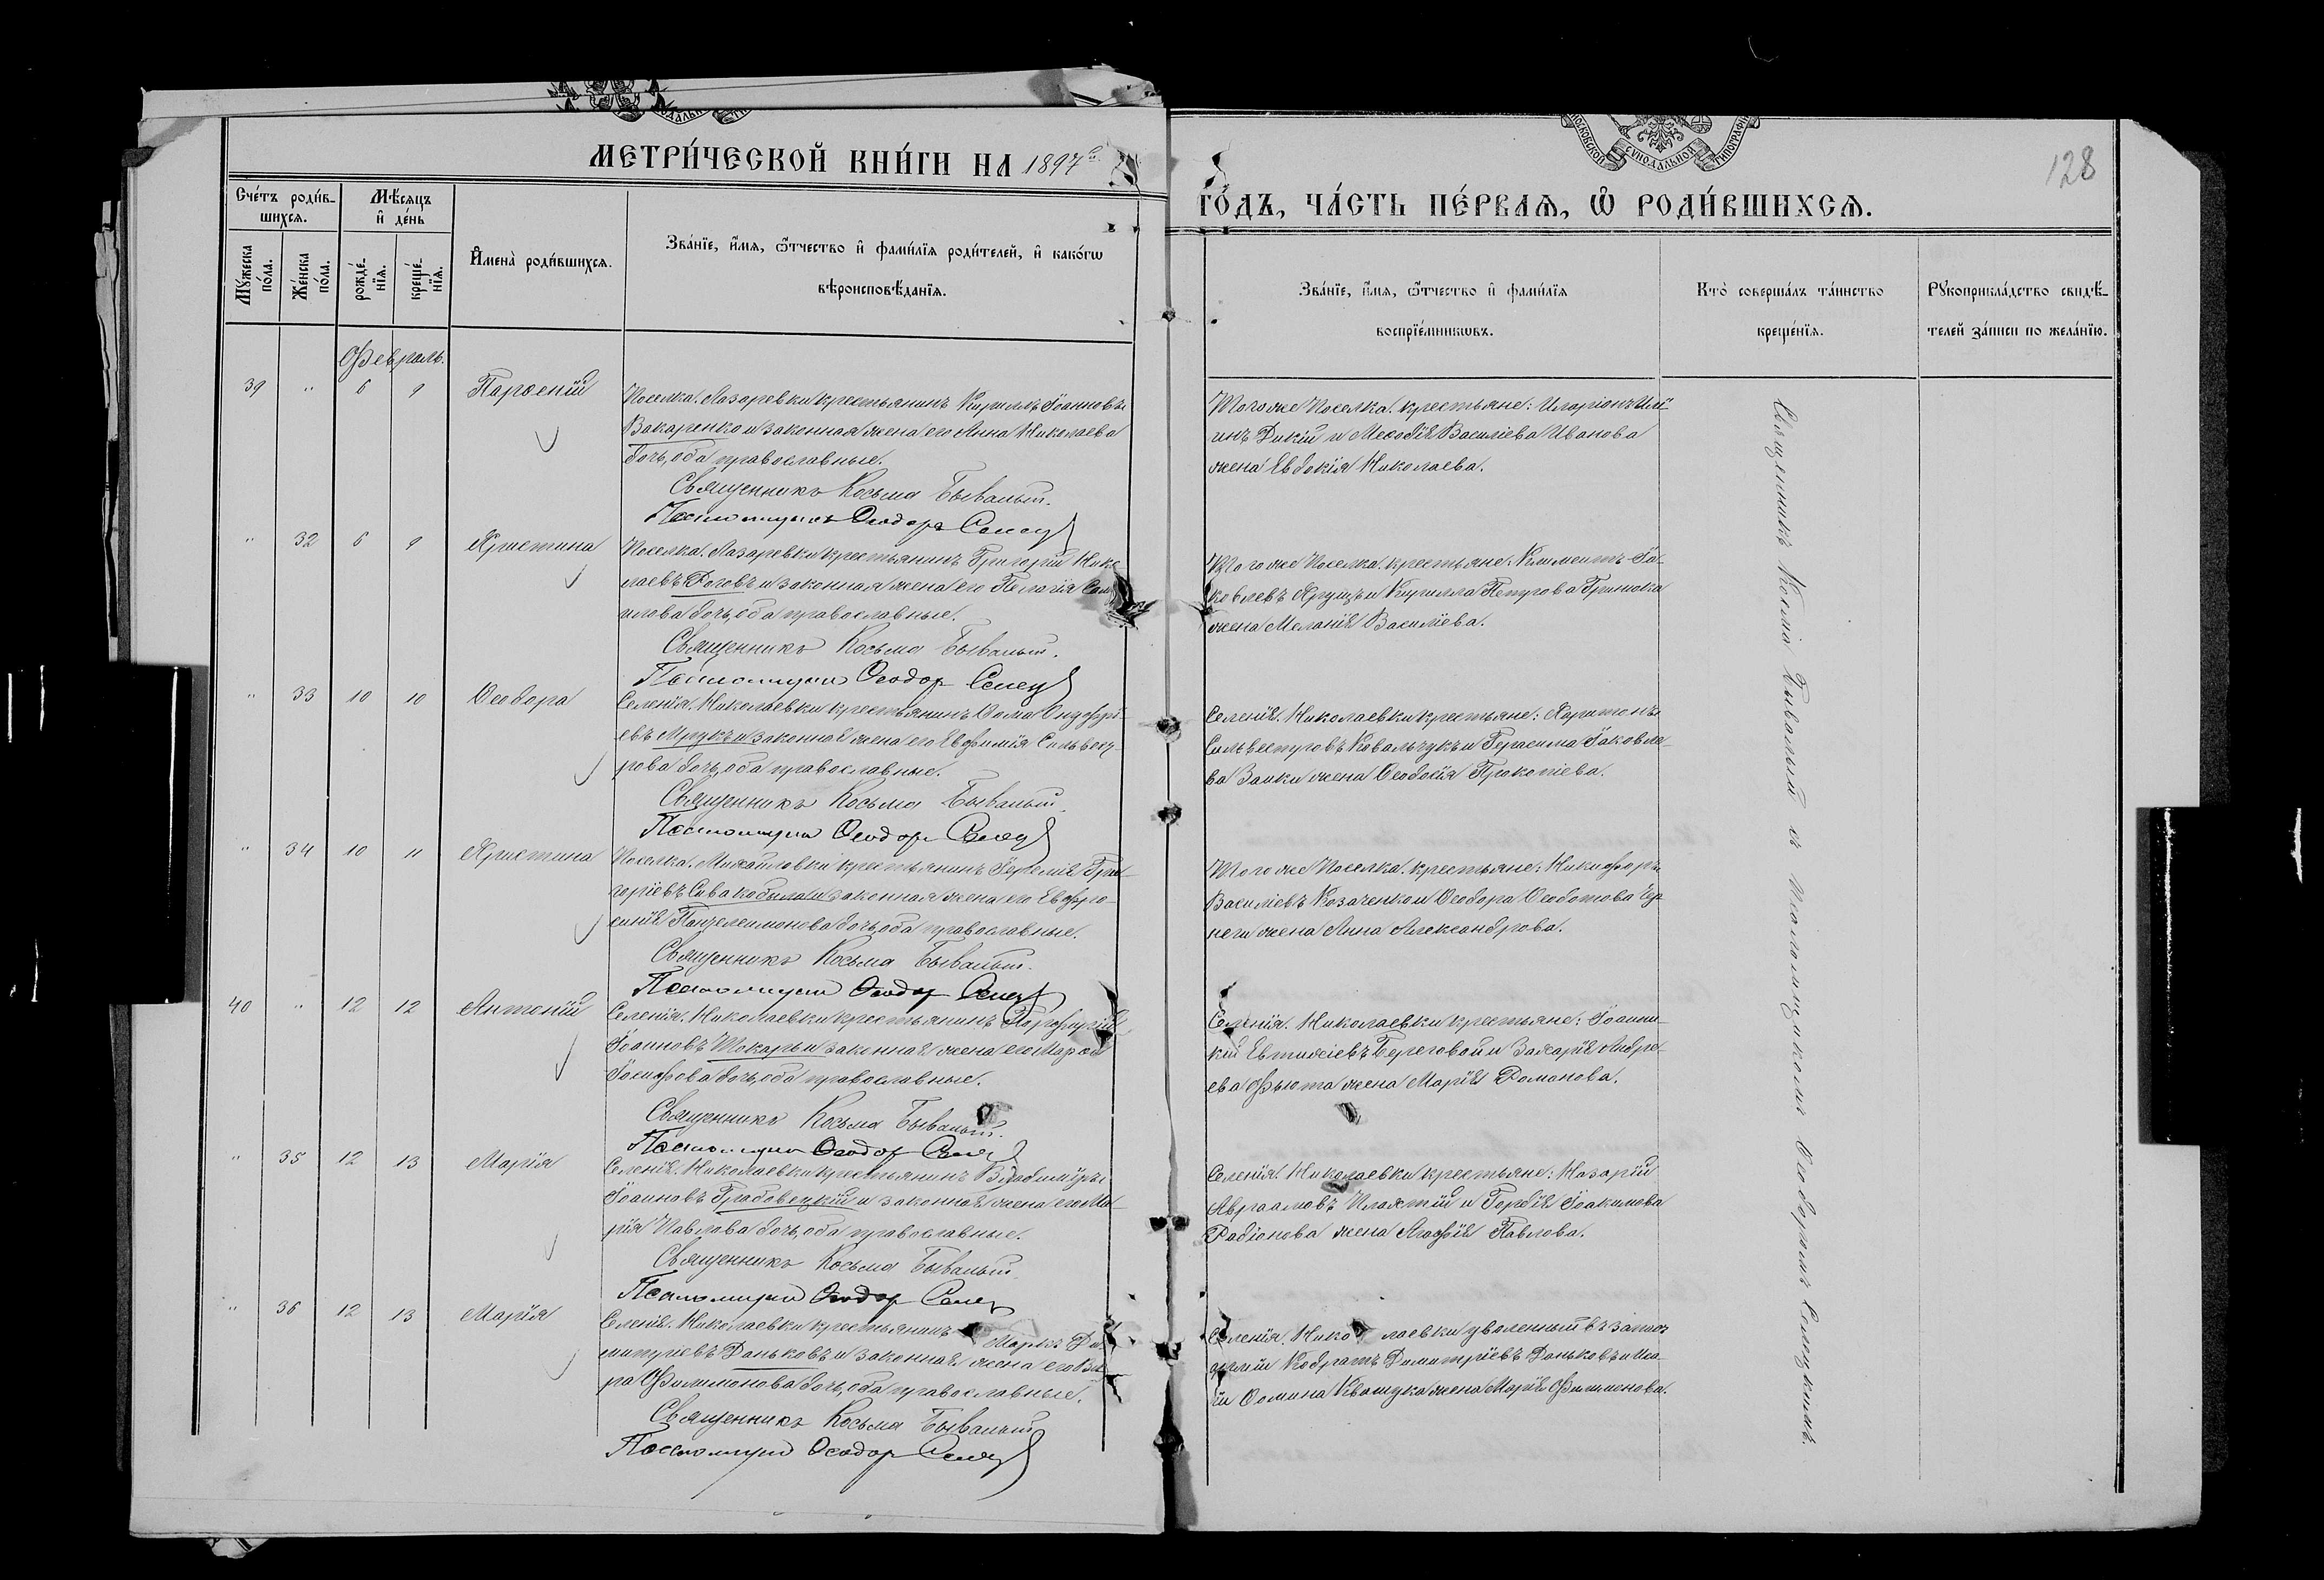 МЕТРИ́ЧЕСКОЙ КНИ́ГИ НА 1897
ГО́ДЪ, ЧА́СТЬ ПЕ́РВАЯ, Ѡ РОДИ́ВШИХСЯ.
128
Сче́тъ роди́в-
шихся.
Мѣ́сяцъ
и҆ де́нь
Мꙋ́жеска по́ла.
Же́нска по́ла.
рожде́-
нїя.
креще́-
нїя.
И҆мена̀ роди́вшихся.
Зва́нїе, и҆́мя, ѻ҆́тчество и҆ фами́лїя роди́телей, и҆ како́гѡ
вѣроисповѣ́данїя.
Зва́нїе, и҆́мя, ѻ҆́тчество и҆ фами́лїя
воспрїе́мникѡвъ.
Кто̀ соверша́лъ та́инство
креще́нїя.
Рꙋкоприкла́дство свидѣ́-
телей за́писи по жела́нїю.
Февраль.
39 " 6 9 Парѳеній
Поселка Лазаревки крестьянинъ Кириллъ Іоанновъ
Вакаренко и законная жена его Анна Николаева
дочь, оба православные.
Священникъ Косьма Бывалый.
Псаломщикъ Ѳеодоръ
Того же Поселка крестьяне: Иларіонъ Илі-
инъ Дикій и Меѳодія Василіева Иванова
жена Евдокія Николаева.
" 32 6 9 Христина
Поселка Лазаревки крестьянинъ Григорій Нико-
лаевъ Роговъ и законная жена его Пелагія
дочь, оба православные.
Священникъ Косьма Бывалый.
Псаломщикъ Ѳеодоръ
Того же Поселка крестьяне: Климентъ Іа-
ковлевъ и Кирилла Петрова
жена Меланія Василіева.
" 33 10 10 Ѳеодора
Селенія Николаевки крестьянинъ Ѳома Онуфрі-
евъ Мрукъ и законная жена его Евфимія Сильвест-
рова дочь, оба православные.
Священникъ Косьма Бывалый.
Псаломщикъ Ѳеодоръ
Селенія Николаевки крестьяне: Харитонъ
Сильвестровъ Ковальчукъ и Герасима Іаковле-
ва Заики жена Ѳеодосія Прокопіева.
" 34 10 11 Христина
Поселка Михайловки крестьянинъ Іеремія Гри-
горіевъ Сивакобыла и законная жена его Евфро-
синія Пантелеимонова дочь, оба православные.
Священникъ Косьма Бывалый.
Псаломщикъ Ѳеодоръ
Того же Поселка крестьяне: Никифоръ
Василіевъ Козаченко и Ѳеодора Ѳеодотова Чер-
неги жена Анна Александрова.
40 " 12 12 Антоній
Селенія Николаевки крестьянинъ Порфирій
Іоанновъ Токарь и законная жена его Марѳа
Іосифова дочь, оба православные.
Священникъ Косьма Бывалый.
Псаломщикъ Ѳеодоръ
Селенія Николаевки крестьяне: Іоанни-
кій Евтихіевъ Береговой и Захарія Андре-
ева Фьюта жена Марія Романова.
" 35 12 13 Марія
Селенія Николаевки крестьянинъ Владиміръ
Іоанновъ Грабовецкій и законная жена его Ма-
рія Павлова дочь, оба православные.
Священникъ Косьма Бывалый.
Псаломщикъ Ѳеодоръ
Селенія Николаевки крестьяне: Назарій
Авраамовъ и Гордія Іоакимова
Радіонова жена Агафія Павлова.
" 36 12 13 Марія
Селенія Николаевки крестьянинъ Маркъ Ди-
митріевъ Даньковъ и законная жена его Вѣ-
ра Филимонова дочь, оба православные.
Священникъ Косьма Бывалый
Псаломщикъ Ѳеодоръ
Селенія Николаевки уволенный въ запасъ
арміи Кодратъ Димитріевъ Даньковъ и
Ѳомина Квашука жена Марія Филимонова.
Священникъ Косма Бывалый съ Псаломщикомъ Ѳеодоромъ